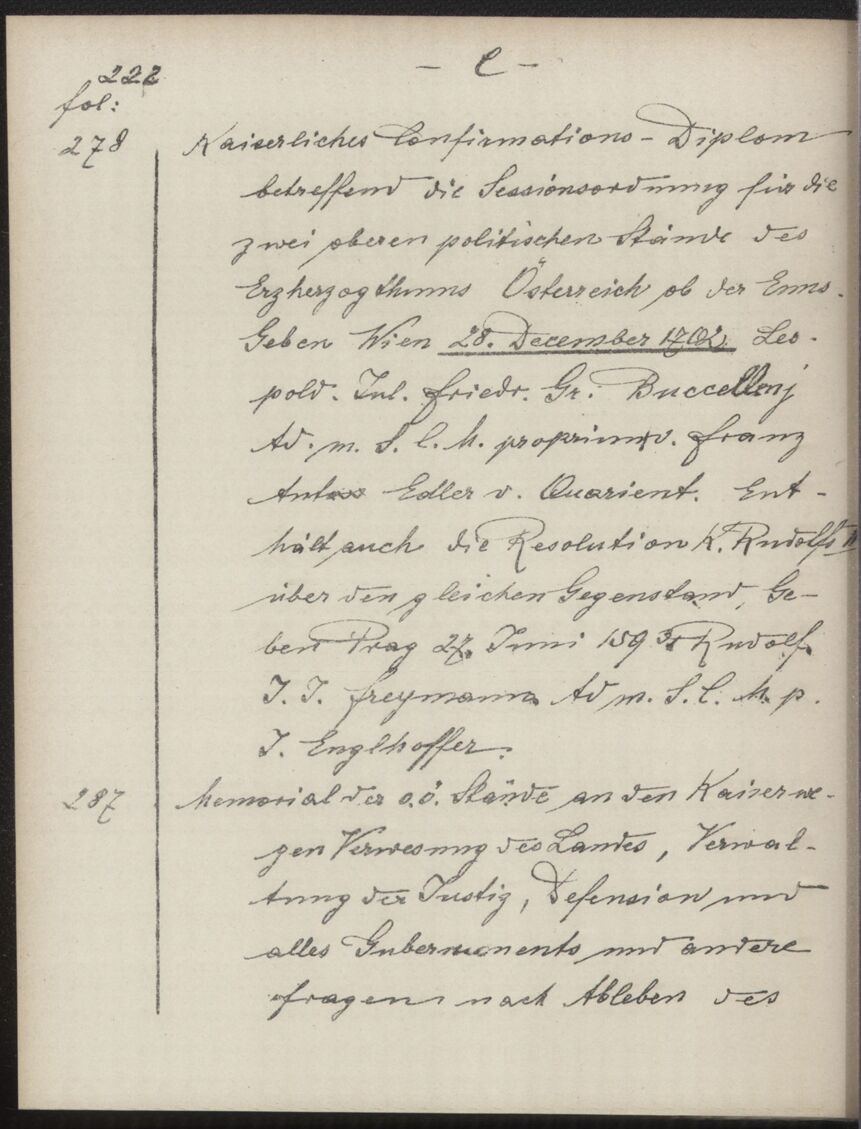 222
- C -
fol:
278 Kaiserliches Confirmations-Diplom
betreffend die Sessionsordnung für die
zwei oberen politischen Stände des
Erzherzogthums Österreich ob der Enns.
Geben Wien 28. December 1702. Leo-
pold. Jul. Friedr. Gr. Buccellenj
Ad. m. S. C. M. proprium. Franz
Anton Edler v. Quarient. Ent-
hält auch die Resolution K. Rudolfs II
über den gleichen Gegenstand, Ge-
ben Prag 27. Juni 1593. Rudolf.
J. J. Freymann. Ad m. S. C. M. p.
J. Englhoffer.
287 Memorial der o.ö. Stände an den Kaiser we-
gen Verwesung des Landes, Verwal-
tung der Justiz, Defension und
alles Gubernements und andere
Fragen nach Ableben des